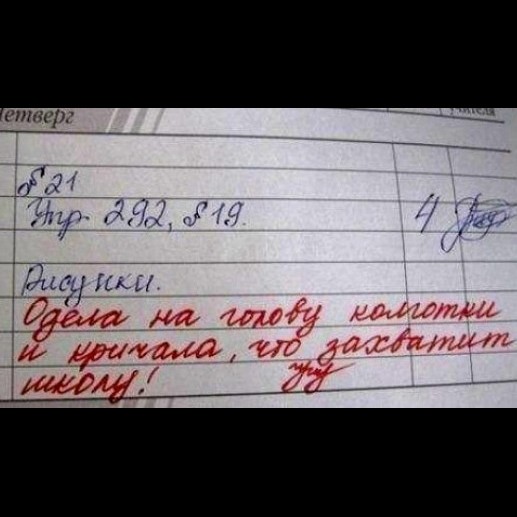 Четверг
учителя
§ 21
Упр. 292, § 19. 4
Рисунки.
Одела на голову колготки
и кричала, что захватит
школу!